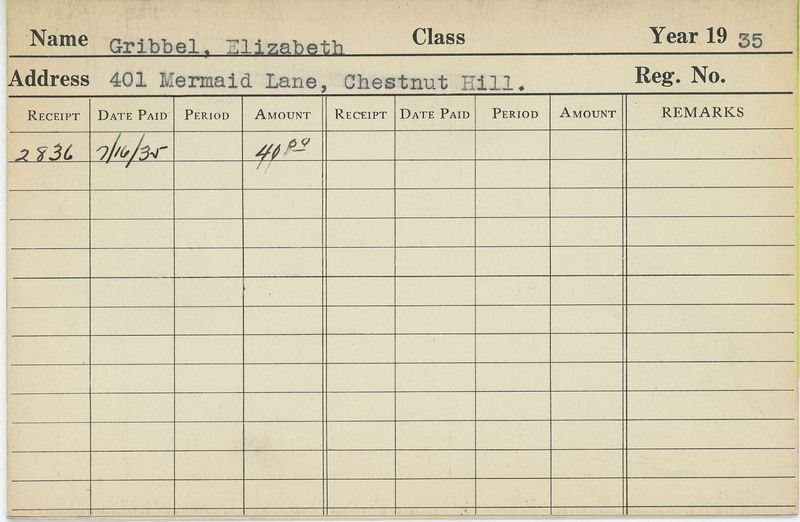 Name Gribbel, Elizabeth Class Year 19 35
Address 401 Mermaid Lane, Chestnut Hill. Reg. No.
RECEIPT DATE PAID PERIOD AMOUNT RECEIPT DATE PAID PERIOD AMOUNT REMARKS
2836 7/16/35 40 00